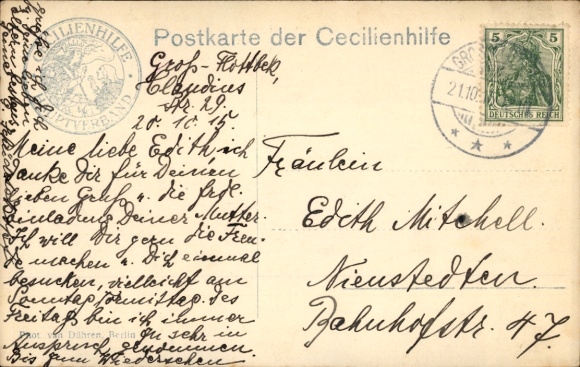 Postkarte der Cecilienhilfe
CILIENHILFE
5 5
DEUTSCHES REICH
21.10.
Groß-Flottbek,
Claudius
str. 29.
20.10.15
Meine liebe Edith ich
danke Dir für Deinen
lieben Gruß u. die frdl.
Einladung Deiner Mutter.
Ich will Dir gern die Freu-
de machen u. Dich einmal
besuchen, vielleicht am
Sonntag Vormittag. Des
Freitags bin ich immer
zu sehr in
Anspruch genommen.
Bis zum Wiedersehen
Phot. van Dühren, Berlin
Fräulein
Edith Mitchell.
Nienstedten.
Bahnhofstr. 47.